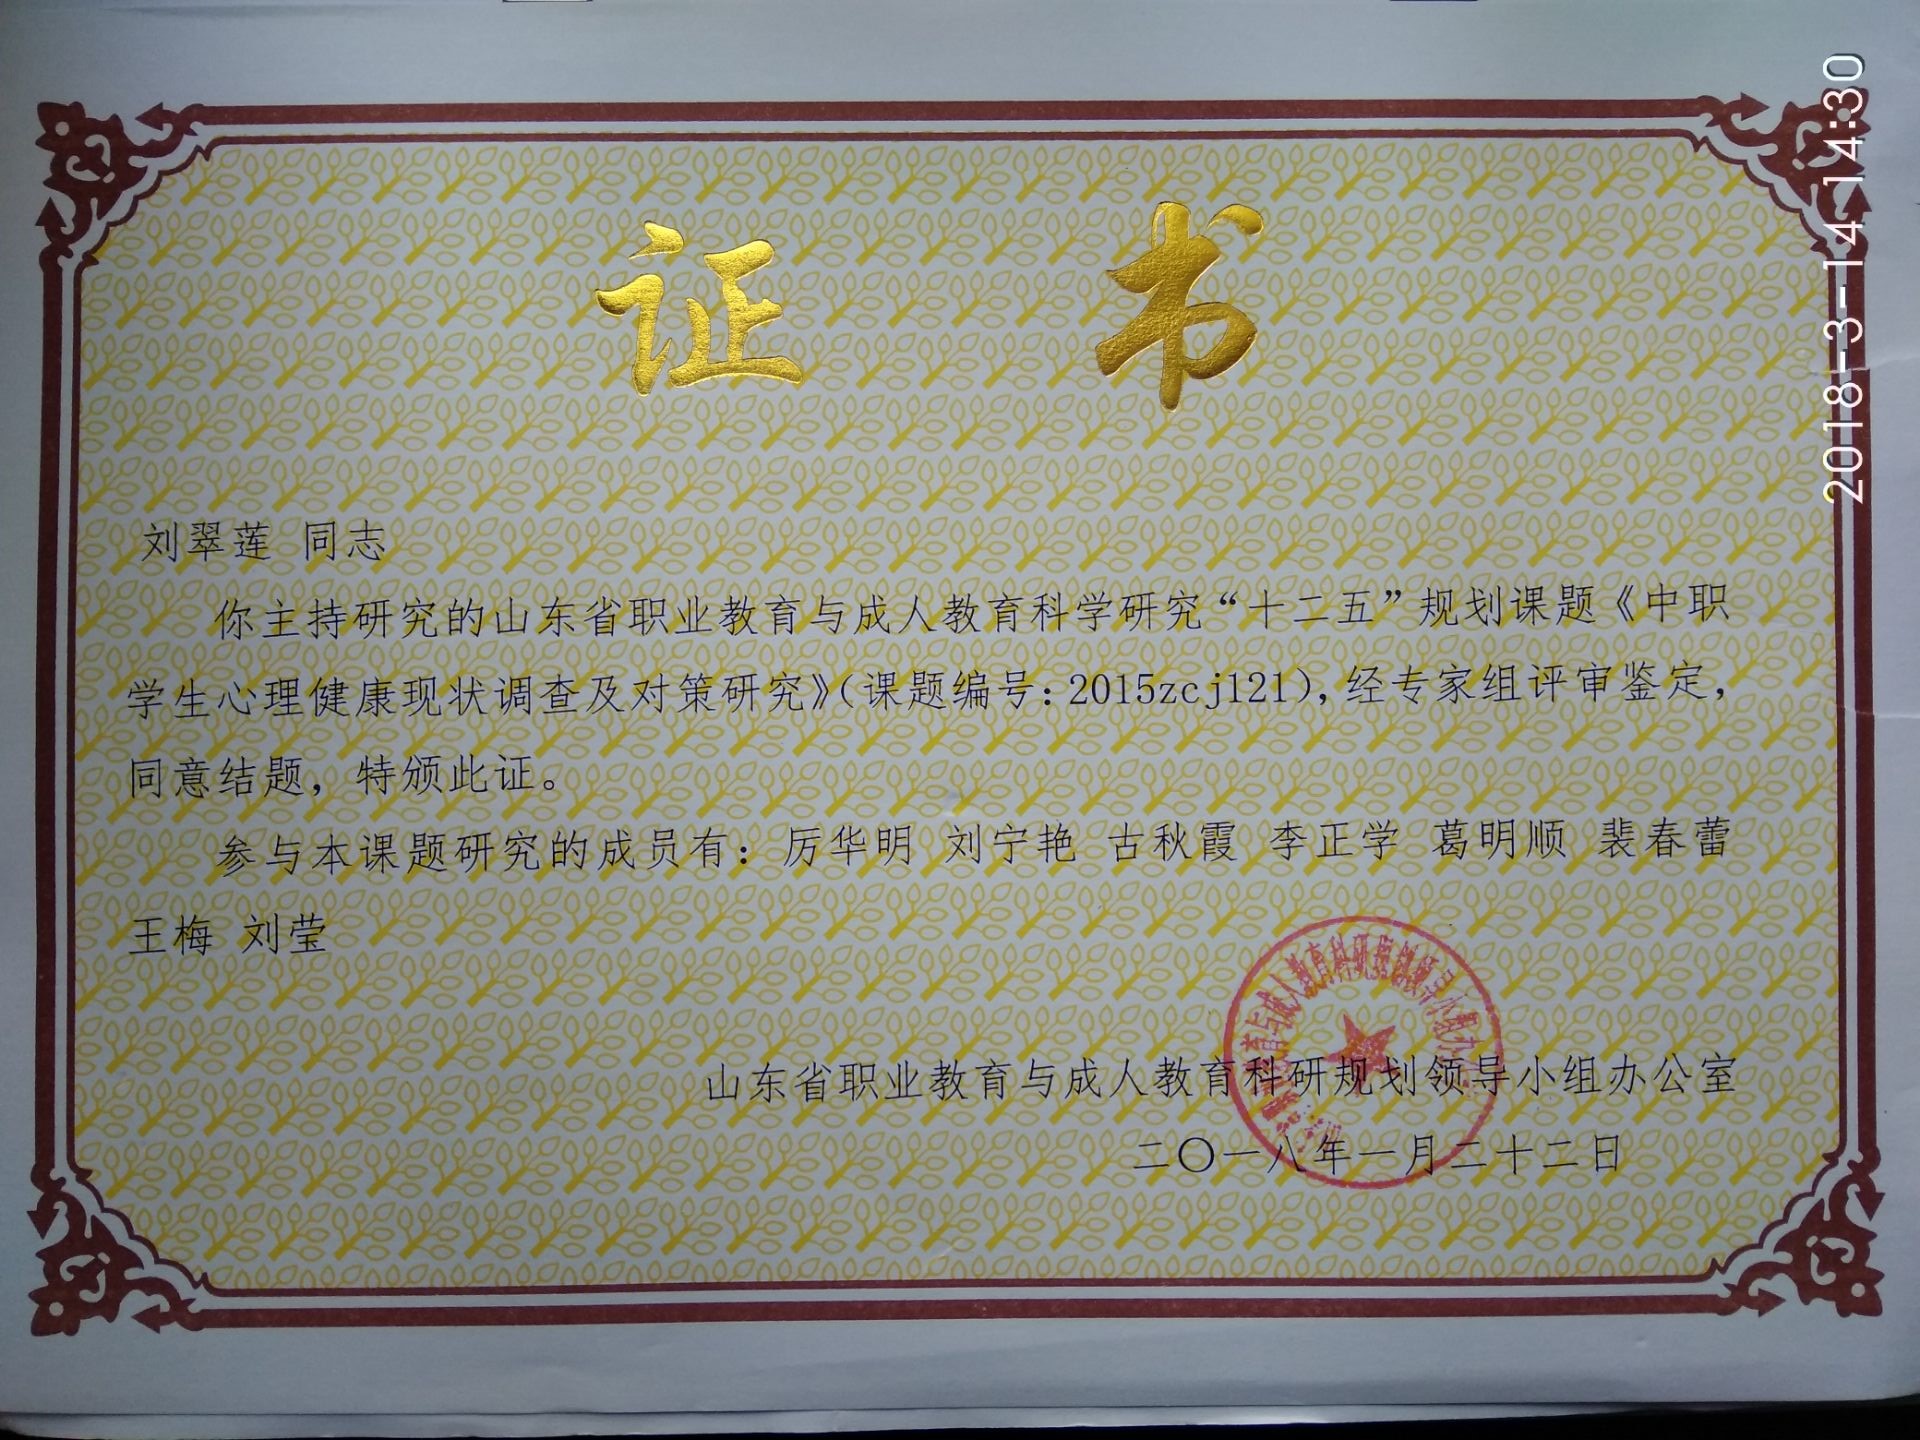 证 书
刘翠莲 同志
你主持研究的山东省职业教育与成人教育科学研究“十二五”规划课题《中职
学生心理健康现状调查及对策研究》（课题编号：2015zcj121），经专家组评审鉴定，
同意结题，特颁此证。
参与本课题研究的成员有：厉华明 刘宁艳 古秋霞 李正学 葛明顺 裴春蕾
王梅 刘莹
山东省职业教育与成人教育科研规划领导小组办公室
二〇一八年一月二十二日
2018-3-14 14:30